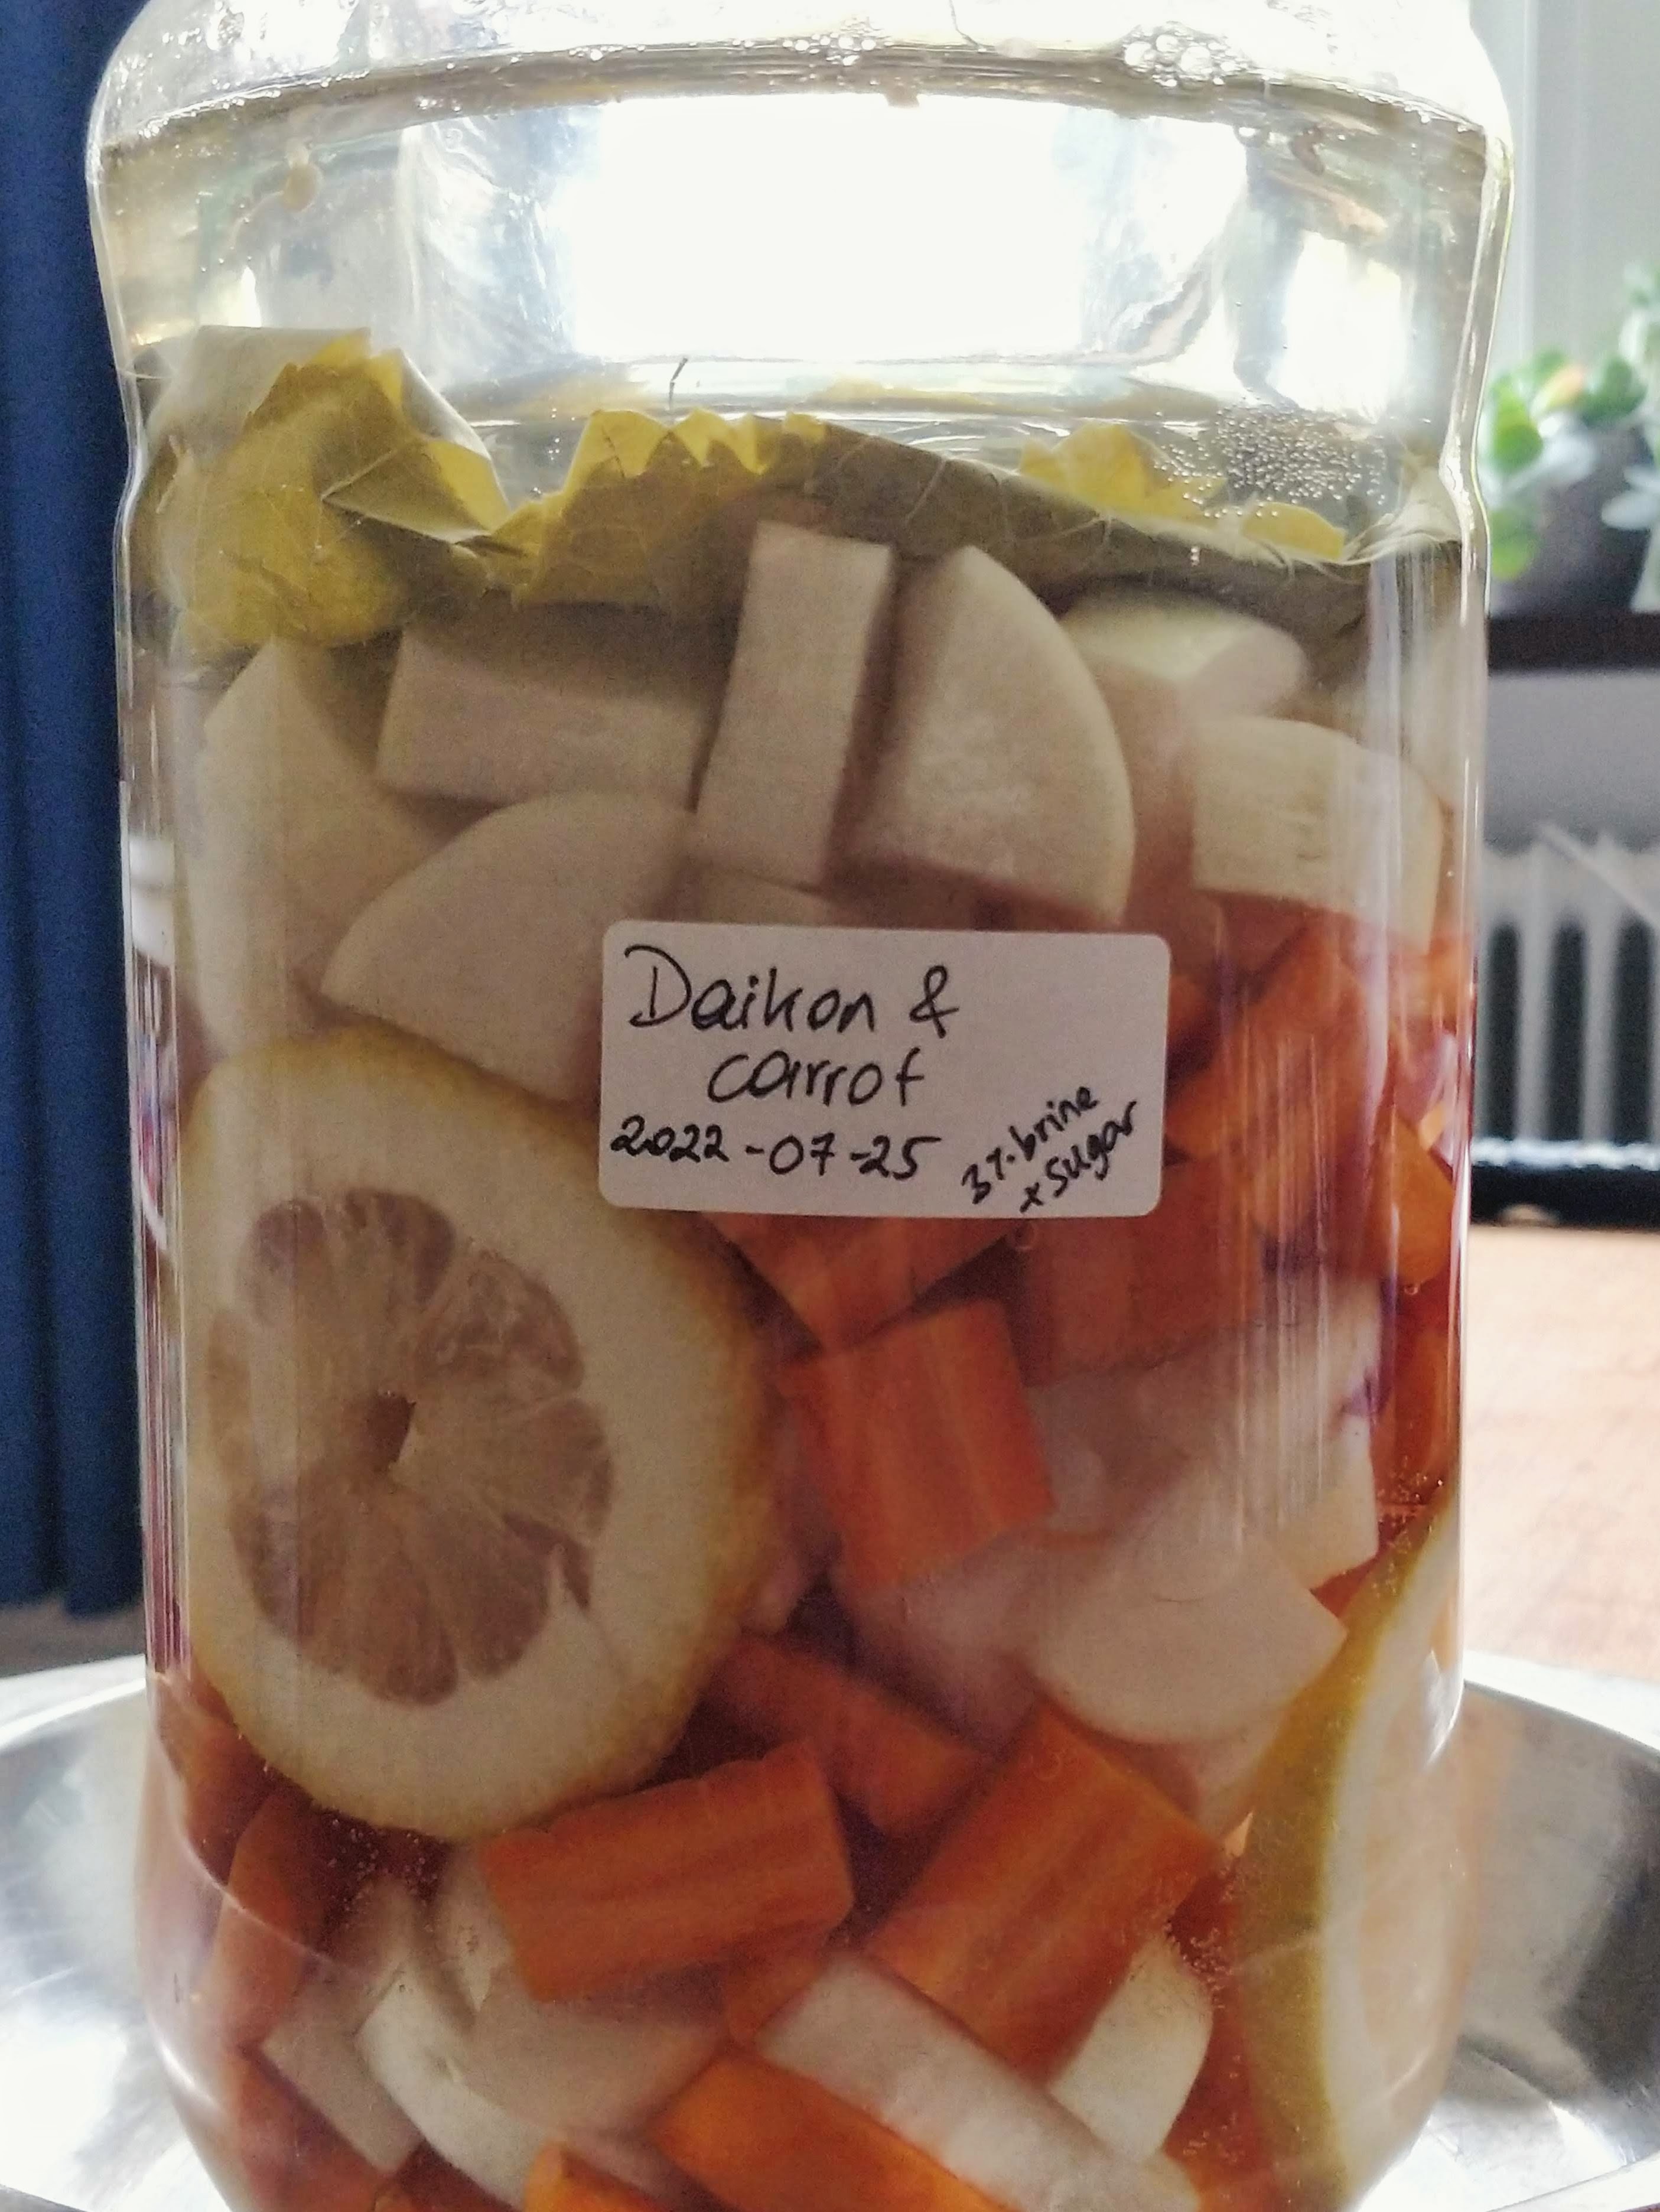 Daikon &
carrot
2022-07-25
3%brine
+ sugar